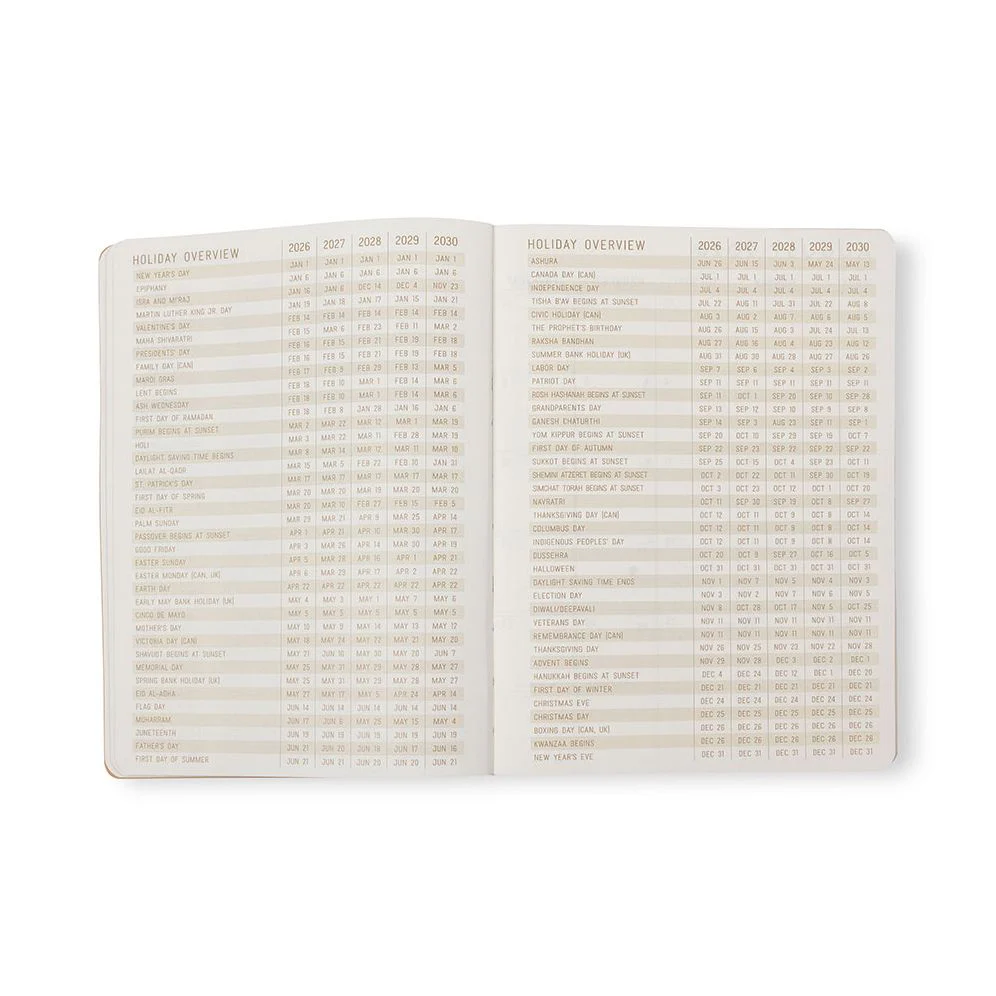 HOLIDAY OVERVIEW 2026 2027 2028 2029 2030
NEW YEAR'S DAY JAN 1 JAN 1 JAN 1 JAN 1 JAN 1
EPIPHANY JAN 6 JAN 6 JAN 6 JAN 6 JAN 6
ISRA AND MI'RAJ JAN 16 JAN 6 DEC 14 DEC 4 NOV 23
MARTIN LUTHER KING JR. DAY JAN 19 JAN 18 JAN 17 JAN 15 JAN 21
VALENTINE'S DAY FEB 14 FEB 14 FEB 14 FEB 14 FEB 14
MAHA SHIVARATRI FEB 15 MAR 6 FEB 23 FEB 11 MAR 2
PRESIDENTS' DAY FEB 16 FEB 15 FEB 21 FEB 19 FEB 18
FAMILY DAY (CAN) FEB 16 FEB 15 FEB 21 FEB 19 FEB 18
MARDI GRAS FEB 17 FEB 9 FEB 29 FEB 13 MAR 5
LENT BEGINS FEB 18 FEB 10 MAR 1 FEB 14 MAR 6
ASH WEDNESDAY FEB 18 FEB 10 MAR 1 FEB 14 MAR 6
FIRST DAY OF RAMADAN FEB 18 FEB 8 JAN 28 JAN 16 JAN 6
PURIM BEGINS AT SUNSET MAR 2 MAR 22 MAR 11 FEB 28 MAR 19
HOLI MAR 3 MAR 22 MAR 11 FEB 28 MAR 19
DAYLIGHT SAVING TIME BEGINS MAR 8 MAR 14 MAR 12 MAR 11 MAR 10
LAILAT AL-QADR MAR 15 MAR 5 FEB 22 FEB 10 JAN 31
ST. PATRICK'S DAY MAR 17 MAR 17 MAR 17 MAR 17 MAR 17
FIRST DAY OF SPRING MAR 20 MAR 20 MAR 19 MAR 20 MAR 20
EID AL-FITR MAR 20 MAR 10 FEB 27 FEB 15 FEB 5
PALM SUNDAY MAR 29 MAR 21 APR 9 MAR 25 APR 14
PASSOVER BEGINS AT SUNSET APR 1 APR 21 APR 10 MAR 30 APR 17
GOOD FRIDAY APR 3 MAR 26 APR 14 MAR 30 APR 19
EASTER SUNDAY APR 5 MAR 28 APR 16 APR 1 APR 21
EASTER MONDAY (CAN, UK) APR 6 MAR 29 APR 17 APR 2 APR 22
EARTH DAY APR 22 APR 22 APR 22 APR 22 APR 22
EARLY MAY BANK HOLIDAY (UK) MAY 4 MAY 3 MAY 1 MAY 7 MAY 6
CINCO DE MAYO MAY 5 MAY 5 MAY 5 MAY 5 MAY 5
MOTHER'S DAY MAY 10 MAY 9 MAY 14 MAY 13 MAY 12
VICTORIA DAY (CAN) MAY 18 MAY 24 MAY 22 MAY 21 MAY 20
SHAVUOT BEGINS AT SUNSET MAY 21 JUN 10 MAY 30 MAY 19 JUN 7
MEMORIAL DAY MAY 25 MAY 31 MAY 29 MAY 28 MAY 27
SPRING BANK HOLIDAY (UK) MAY 25 MAY 31 MAY 29 MAY 28 MAY 27
EID AL-ADHA MAY 27 MAY 17 MAY 5 APR 24 APR 14
FLAG DAY JUN 14 JUN 14 JUN 14 JUN 14 JUN 14
MUHARRAM JUN 17 JUN 6 MAY 25 MAY 15 MAY 4
JUNETEENTH JUN 19 JUN 19 JUN 19 JUN 19 JUN 19
FATHER'S DAY JUN 21 JUN 20 JUN 18 JUN 17 JUN 16
FIRST DAY OF SUMMER JUN 21 JUN 21 JUN 20 JUN 20 JUN 21
HOLIDAY OVERVIEW 2026 2027 2028 2029 2030
ASHURA JUN 26 JUN 15 JUN 3 MAY 24 MAY 13
CANADA DAY (CAN) JUL 1 JUL 1 JUL 1 JUL 1 JUL 1
INDEPENDENCE DAY JUL 4 JUL 4 JUL 4 JUL 4 JUL 4
TISHA B'AV BEGINS AT SUNSET JUL 22 AUG 11 JUL 31 JUL 22 AUG 8
CIVIC HOLIDAY (CAN) AUG 3 AUG 2 AUG 7 AUG 6 AUG 5
THE PROPHET'S BIRTHDAY AUG 26 AUG 15 AUG 3 JUL 24 JUL 13
RAKSHA BANDHAN AUG 27 AUG 16 AUG 4 AUG 23 AUG 12
SUMMER BANK HOLIDAY (UK) AUG 31 AUG 30 AUG 28 AUG 27 AUG 26
LABOR DAY SEP 7 SEP 6 SEP 4 SEP 3 SEP 2
PATRIOT DAY SEP 11 SEP 11 SEP 11 SEP 11 SEP 11
ROSH HASHANAH BEGINS AT SUNSET SEP 11 OCT 1 SEP 20 SEP 9 SEP 27
GRANDPARENTS DAY SEP 13 SEP 12 SEP 10 SEP 9 SEP 8
GANESH CHATURTHI SEP 14 SEP 3 AUG 23 SEP 11 SEP 1
YOM KIPPUR BEGINS AT SUNSET SEP 20 OCT 10 SEP 29 SEP 18 OCT 6
FIRST DAY OF AUTUMN SEP 22 SEP 23 SEP 22 SEP 22 SEP 22
SUKKOT BEGINS AT SUNSET SEP 25 OCT 15 OCT 4 SEP 23 OCT 11
SHEMINI ATZERET BEGINS AT SUNSET OCT 2 OCT 22 OCT 11 SEP 30 OCT 18
SIMCHAT TORAH BEGINS AT SUNSET OCT 3 OCT 23 OCT 12 OCT 1 OCT 20
NAVRATRI OCT 11 SEP 30 SEP 19 OCT 8 SEP 27
THANKSGIVING DAY (CAN) OCT 12 OCT 11 OCT 9 OCT 8 OCT 14
COLUMBUS DAY OCT 12 OCT 11 OCT 9 OCT 8 OCT 14
INDIGENOUS PEOPLES' DAY OCT 12 OCT 11 OCT 9 OCT 8 OCT 14
DUSSEHRA OCT 20 OCT 9 SEP 27 OCT 16 OCT 5
HALLOWEEN OCT 31 OCT 31 OCT 31 OCT 31 OCT 31
DAYLIGHT SAVING TIME ENDS NOV 1 NOV 7 NOV 5 NOV 4 NOV 3
ELECTION DAY NOV 3 NOV 2 NOV 7 NOV 6 NOV 5
DIWALI/DEEPAVALI NOV 8 OCT 28 OCT 17 NOV 5 OCT 25
VETERANS DAY NOV 11 NOV 11 NOV 11 NOV 11 NOV 11
REMEMBRANCE DAY (CAN) NOV 11 NOV 11 NOV 11 NOV 11 NOV 11
THANKSGIVING DAY NOV 26 NOV 25 NOV 23 NOV 22 NOV 28
ADVENT BEGINS NOV 29 NOV 28 DEC 3 DEC 2 DEC 1
HANUKKAH BEGINS AT SUNSET DEC 4 DEC 24 DEC 12 DEC 1 DEC 20
FIRST DAY OF WINTER DEC 21 DEC 21 DEC 21 DEC 21 DEC 21
CHRISTMAS EVE DEC 24 DEC 24 DEC 24 DEC 24 DEC 24
CHRISTMAS DAY DEC 25 DEC 25 DEC 25 DEC 25 DEC 25
BOXING DAY (CAN, UK) DEC 26 DEC 26 DEC 26 DEC 26 DEC 26
KWANZAA BEGINS DEC 26 DEC 26 DEC 26 DEC 26 DEC 26
NEW YEAR'S EVE DEC 31 DEC 31 DEC 31 DEC 31 DEC 31